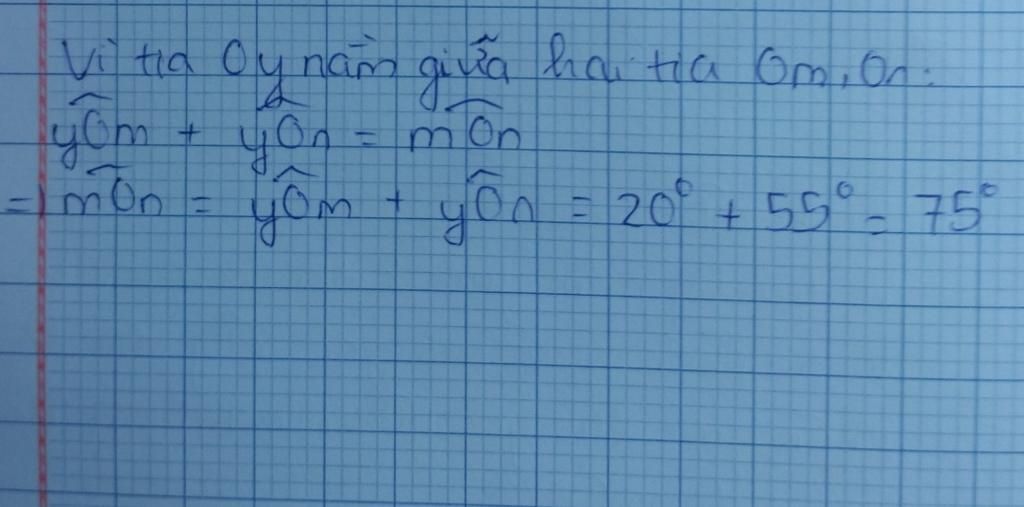 Vì tia Oy nằm giữa hai tia Om, On:
yÔm + yÔn = mÔn
=) mÔn = yÔm + yÔn = 20° + 55° = 75°